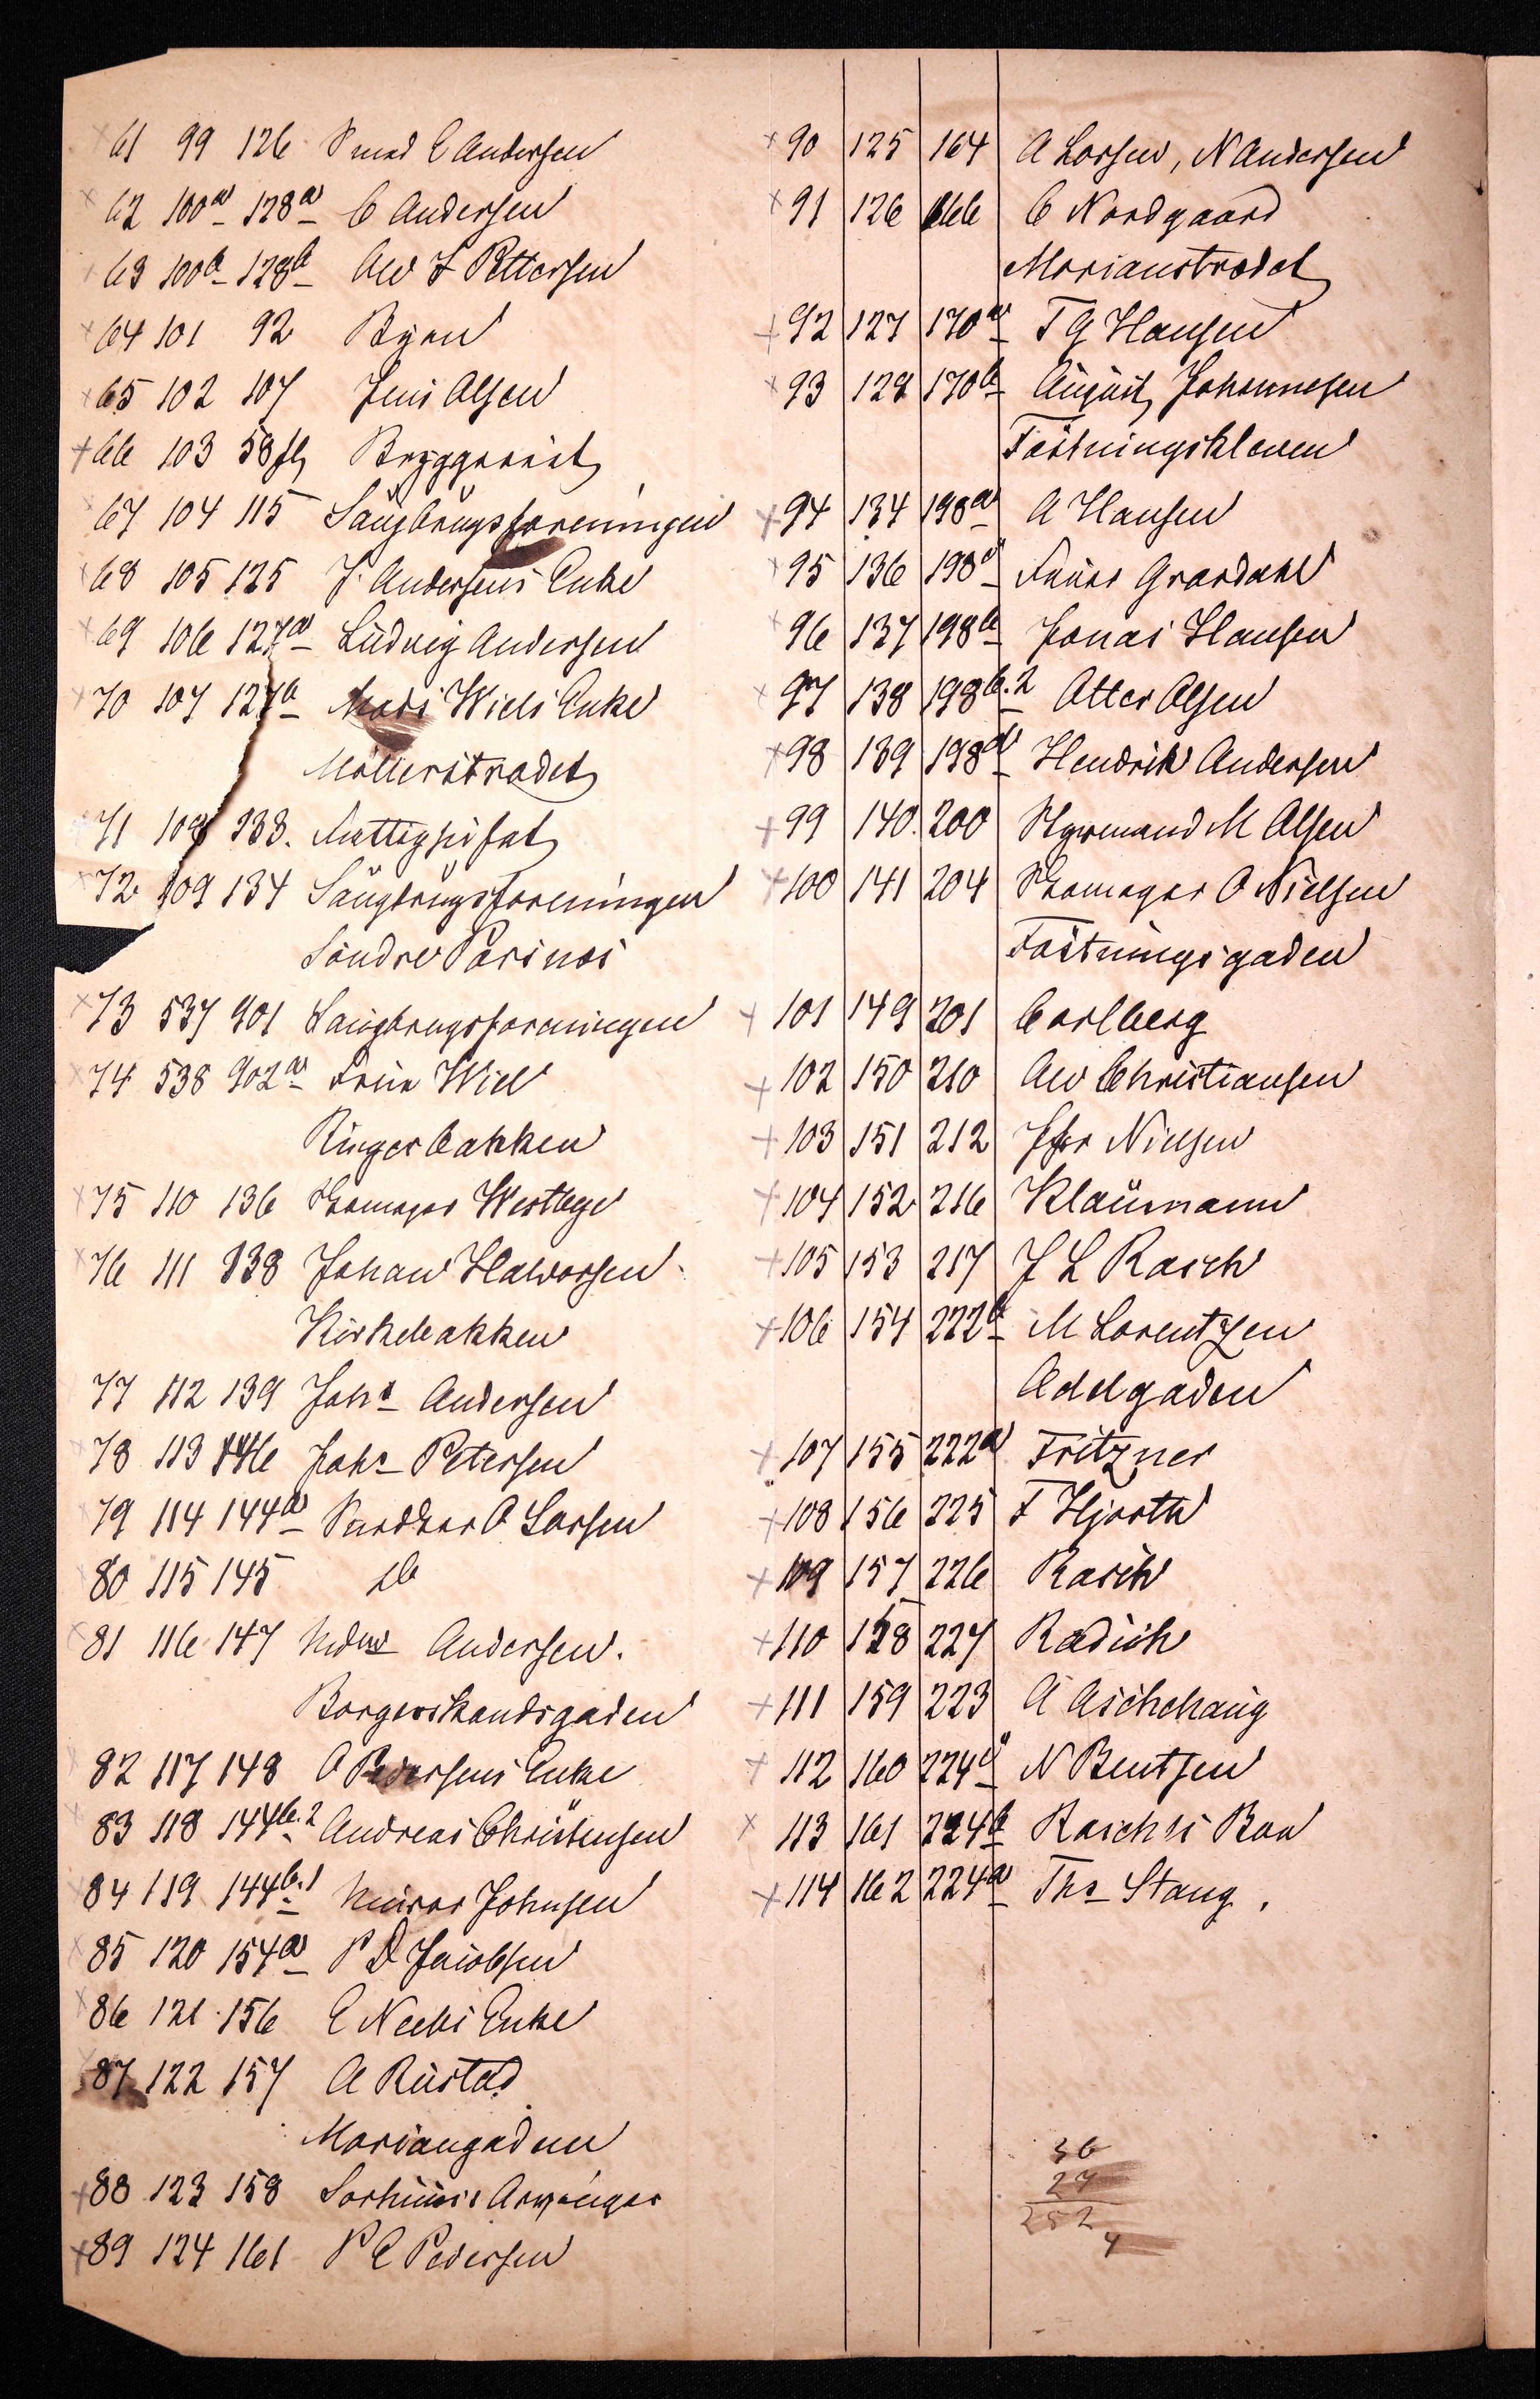 61 99 126 Smed E Andersen
62 100a 128a C Andersen
63 100b 128b Aw L Pettersen
64 101 92 Byen
65 102 107 Jens Olsen
66 103 58 fl Bryggeriet
67 104 115 Saugbrugsforeningen
68 105 125 J. Andersens Enke
69 106 127a Ludvig Andersen
70 107 127b Mads Wiels Enke
Möllerstrædet
71 108 133. Fattighuset
72 109 134 Saugbrugsforeningen
Söndre Parinos
73 537 901 Saugbrugsforeningen
74 538 902a Frue Wiel
Ringerbakken
75 110 136 Skomager Westbye
76 111 138 Johan Halvorsen
Kirkebakken
77 112 139 Johs Andersen
78 113 146 Johs Petersen
79 114 144a Snedker O Larsen
80 115 145 do
81 116 147 Mdm Andersen.
Borgerskandsgaden
82 117 148 O Pedersens Enke
83 118 144b.2 Andreas Christensen
84 119 144b.1 Murer Johnsen
85 120 154a P D Jacobsen
86 121 156 E Neebs Enke
87 122 157 A Rustad
Mariangaden
88 123 158 Sorknæs Arvinger
89 124 161 P E Pedersen
90 125 164 A Larsen, N Andersen
91 126 166 C Nordgaard
Marianstrædet
92 127 170a T G Hansen
93 129 170b August Johannesen
Fæstningskleven
94 134 198a A Hansen
95 136 198c Frues Graadahl
96 137 198b Jonas Hansen
97 138 198b.2 Otter Olsen
98 139 198d Hendrik Andersen
99 140. 200 Styrmand M Olsen
100 141 204 Skomager O Nielsen
Fæstningsgaden
101 149 201 Carlberg
102 150 210 Aw Christiansen
103 151 212 Jfr Nielsen
104 152 216 Klaumann
105 153 217 J L Rasch
106 154 222b M Lorentzen
Adelgaden
107 155 222a Fritzner
108 156 225 F Hjorth
109 157 226 Rasch
110 158 227 Radich
111 159 223 A Aschehaug
112 160 224c N Bentsen
113 161 224b Rasch's Boe
114 162 224a Ths Stang.
36
27
252
4